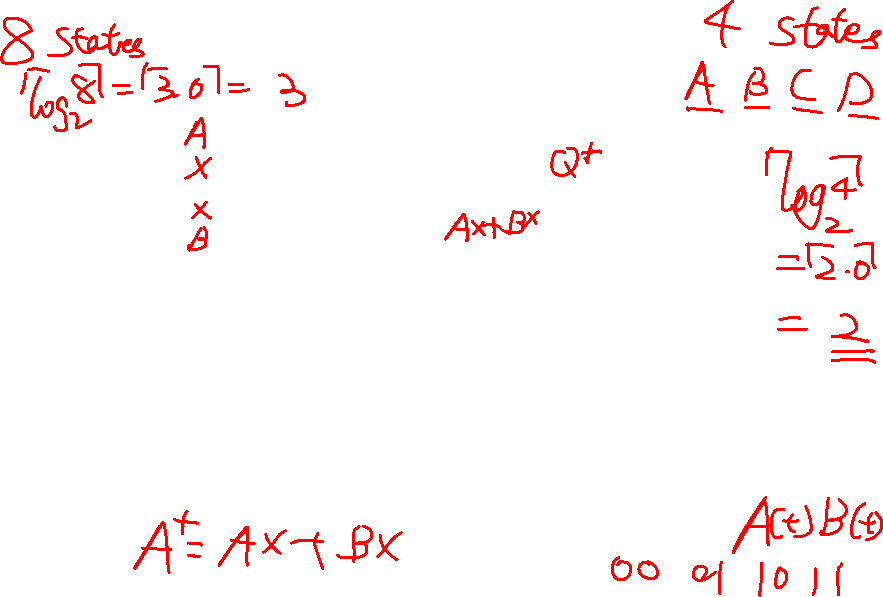 8 states
⌈log₂8⌉ = ⌈3.0⌉ = 3
A
X
X
B
4 states
A B C D
⌈log₂4⌉
= ⌈2.0⌉
= 2
Q+
AX+BX
A+ = AX + BX
A(t) B(t)
00 01 10 11